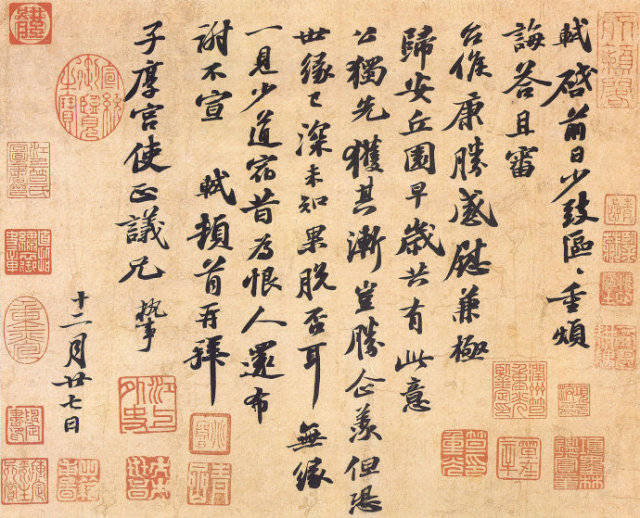 軾啓前日少致區〻重煩
誨荅且審
台候康勝感慰兼極
歸安丘園早歲共有此意
公獨先獲其漸豈勝企羡但恐
世緣已深未知果脫否耳無緣
一見少道宿昔為恨人還布
謝不宣 軾頓首再拜
子厚宮使正議兄 執事
十二月廿七日